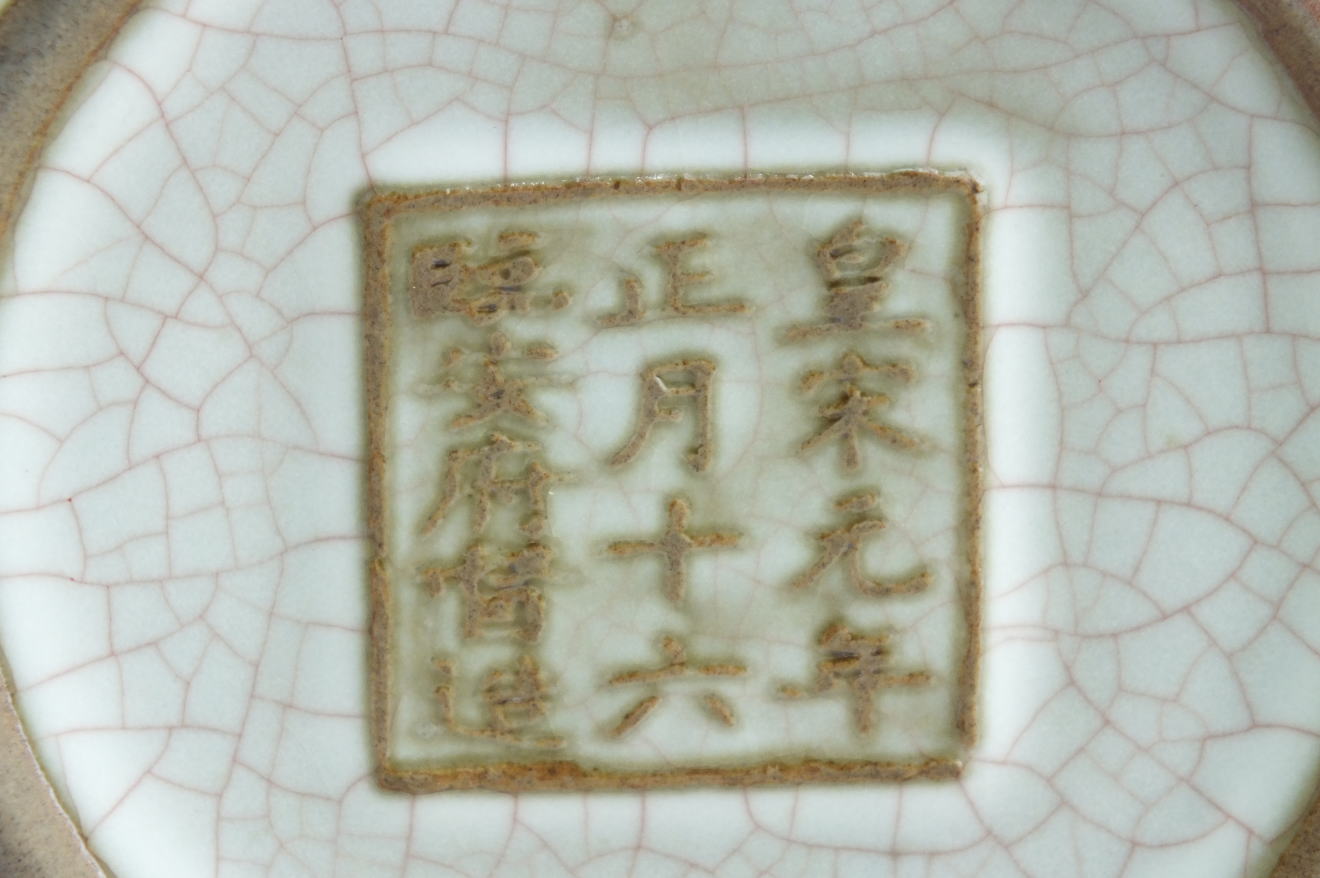 皇宋元年
正月十六
臨安府督造